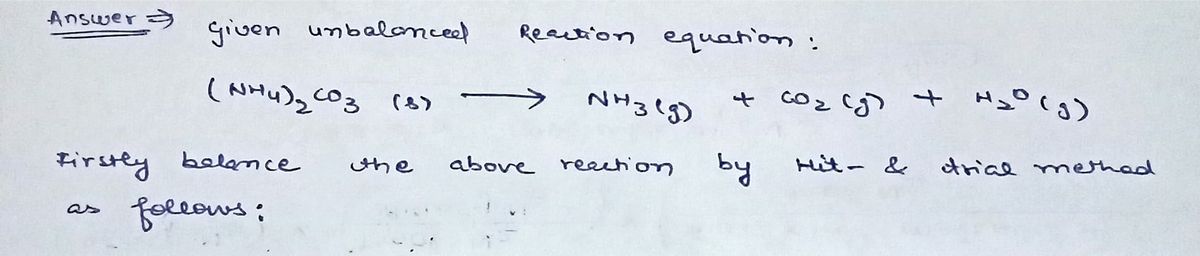 Answer ⇒ Given unbalanced Reaction equation :
(NH4)₂CO₃ (s) ⟶ NH₃(g) + CO₂(g) + H₂O(g)
Firstly balance the above reaction by Hit- & trial method
as follows :